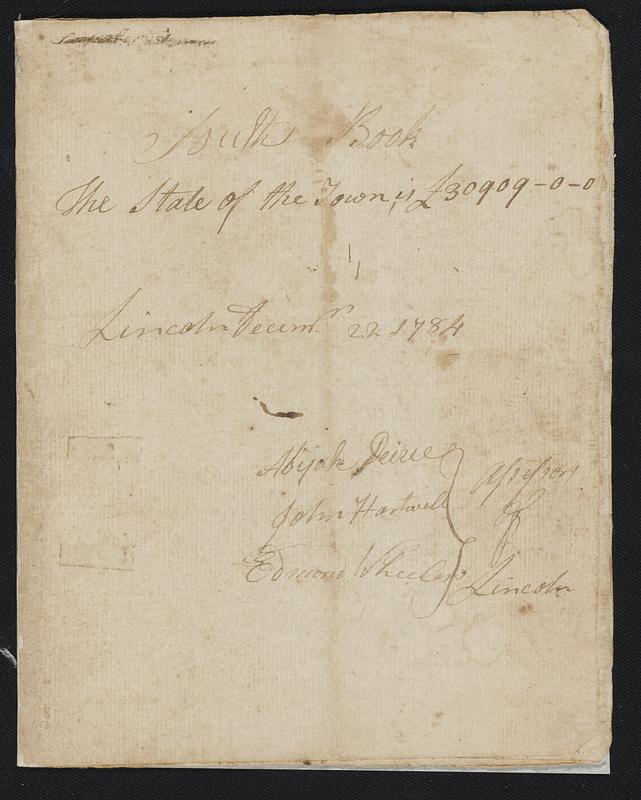 South Book
The State of the Town is £30909-0-0
Lincoln Decemr 22 1784
Abijah Peirce
John Hartwell
Edmund Wheeler
Assessors
of
Lincoln